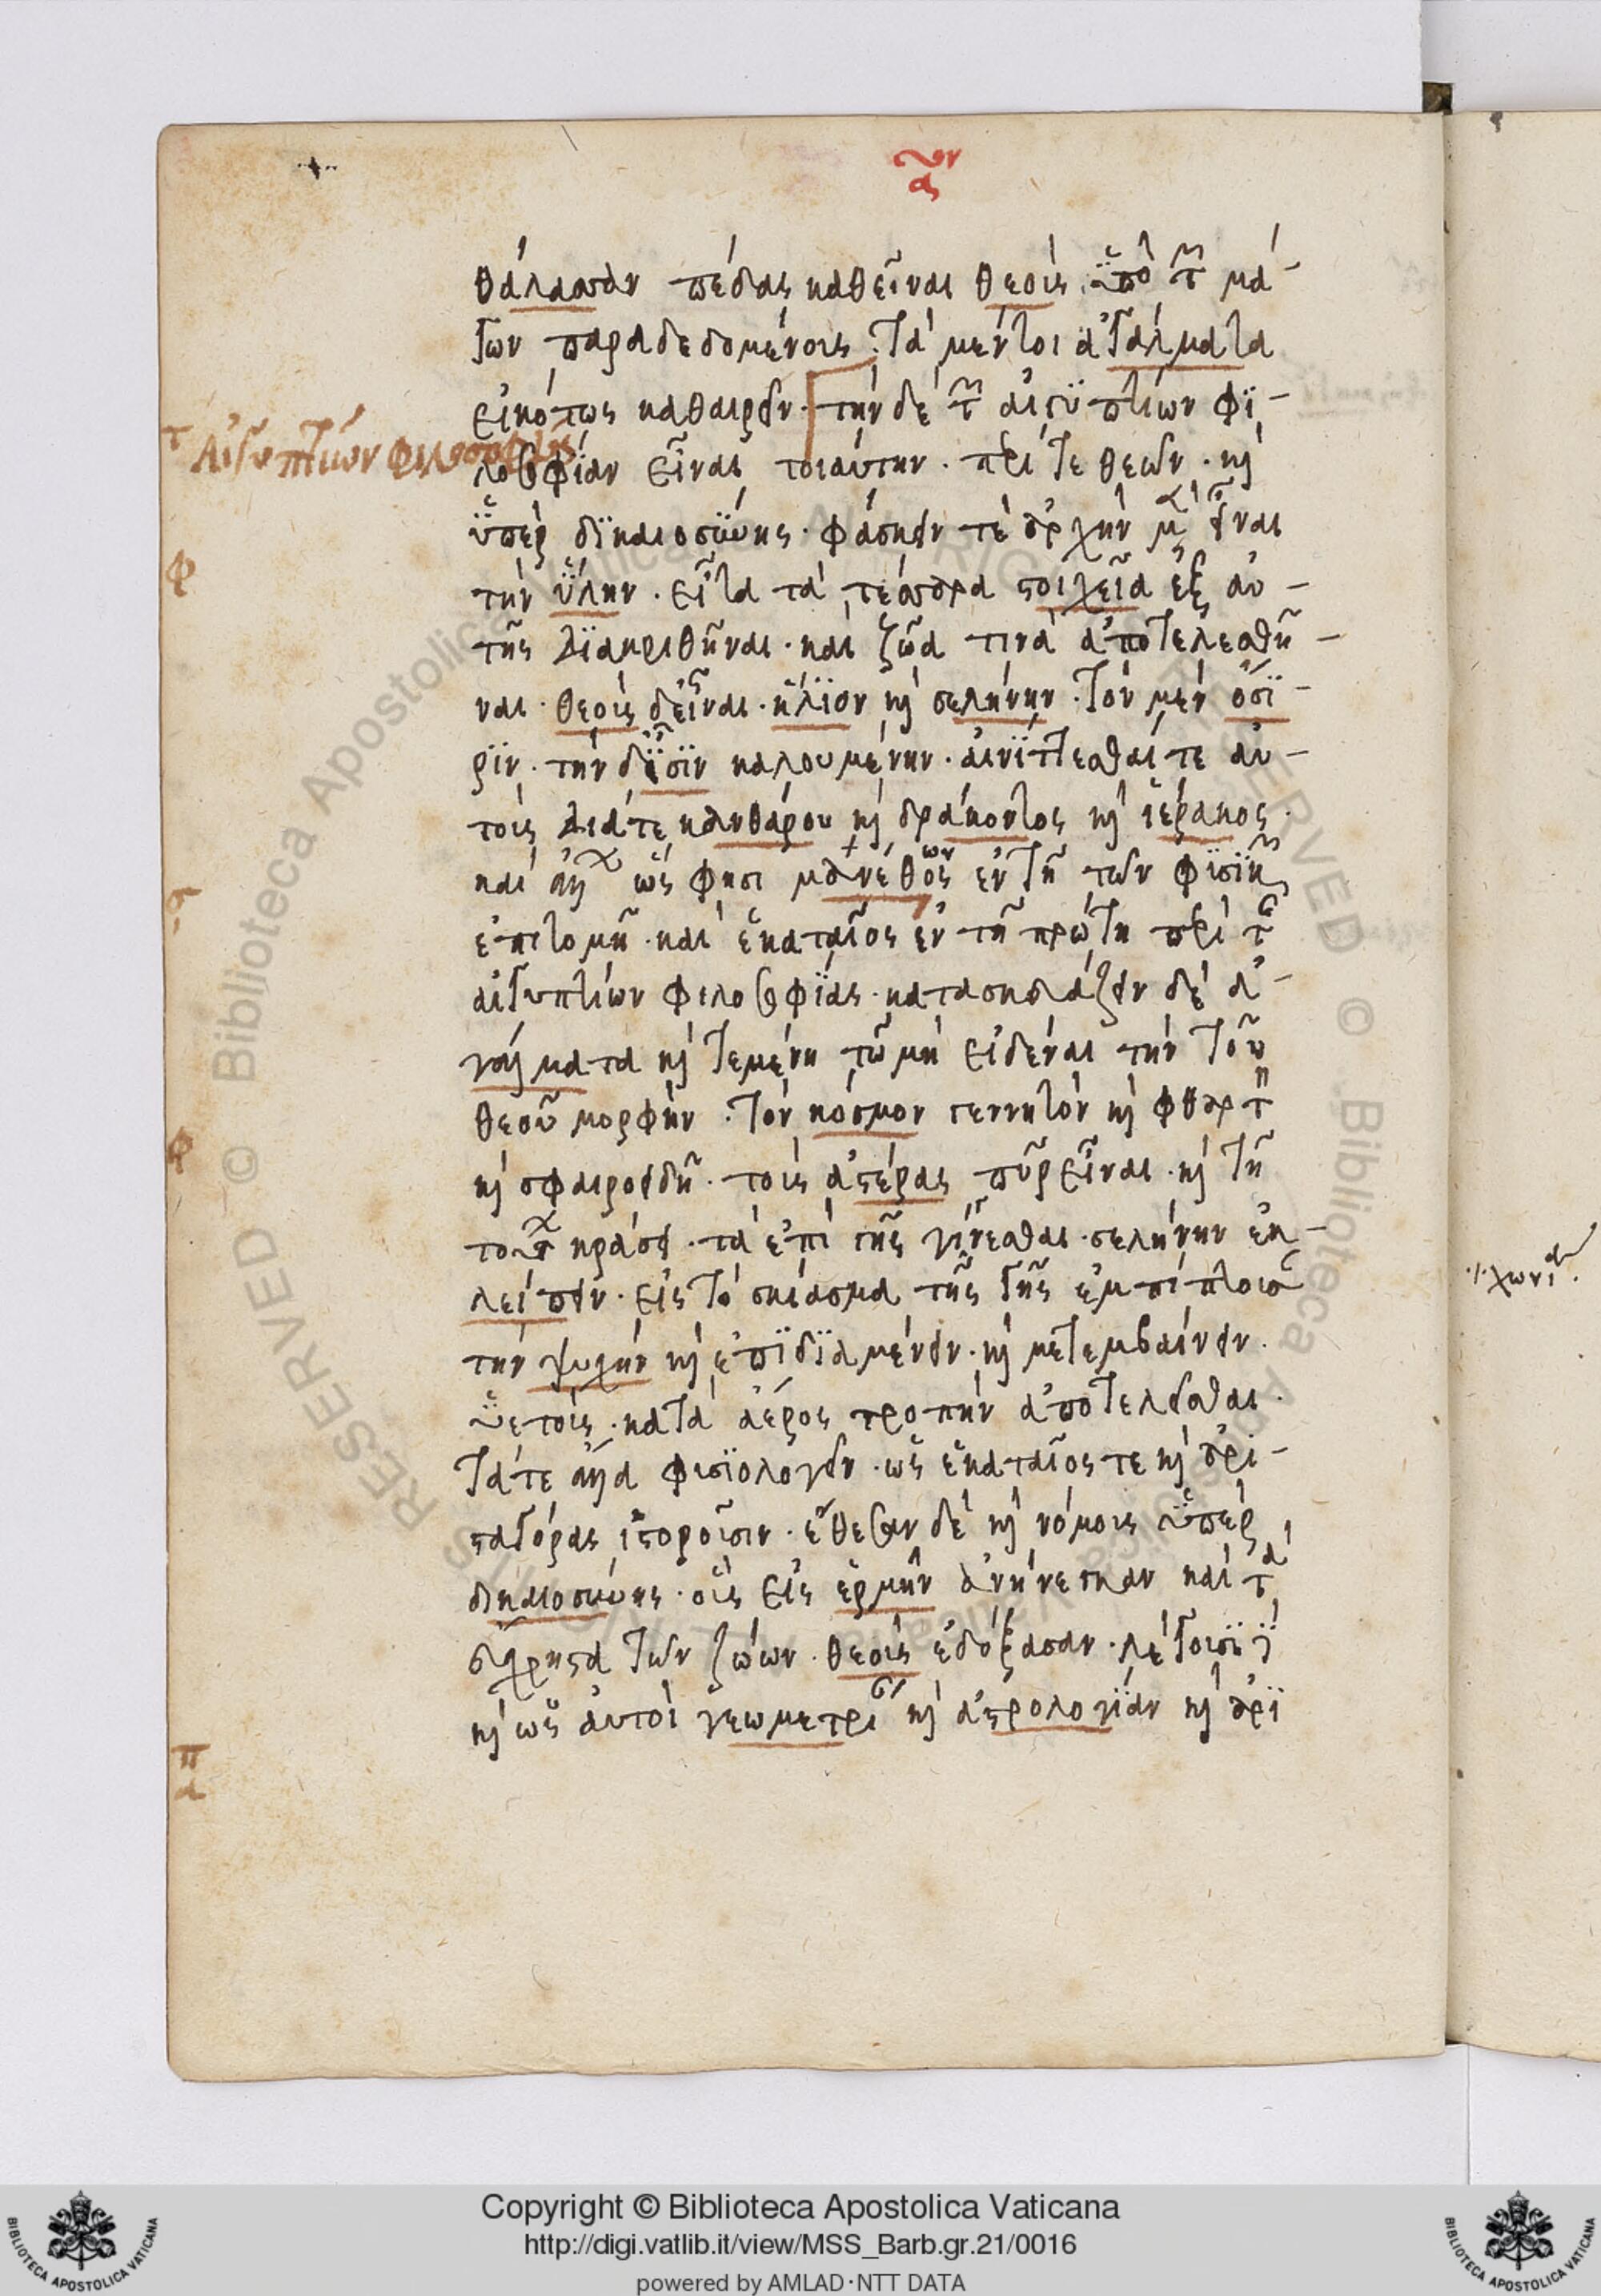 θάλασσαν πέδας καθεῖναι θεοὺς ὑπὸ τῶν μά-
γων παραδεδομένους. τὰ μέντοι ἀγάλματα
εἰκότως καθαιρεῖν. τὴν δὲ τῶν αἰγυπτίων φϊ-
λοσοφίαν εἶναι τοιαύτην. περί τε θεῶν. καὶ
ὑπὲρ δϊκαιοσύνης. φάσκειν τὲ ἀρχὴν μὲν εἶναι
τὴν ὕλην. εἶτα τὰ τέσσαρα στοιχεῖα ἐξ αὐ-
τῆς διακριθῆναι. καὶ ζῶα τινὰ ἀποτελεσθῆ-
ναι. θεοὺς δ' εἶναι. ἥλϊον καὶ σελήνην. τὸν μὲν ὄσϊ-
ρϊν. τὴν δ' ἶσϊν καλουμένην. αἰνίττεσθαί τε αὐ-
τοὺς διά τε κανθάρου καὶ δράκοντος καὶ ἱέρακος.
καὶ ἄλλων ὥς φησι μανέθως ἐν τῆ τῶν φϊσϊκῶν
ἐπιτομῆ. καὶ ἑκαταῖος ἐν τῆ πρώτη περὶ τῆς
αἰγυπτίων φιλοσοφϊας. κατασκευάζειν δὲ ἀ-
γάλματα καὶ τεμένη τῶ μὴ εἰδέναι τὴν τοῦ
θεοῦ μορφήν. τὸν κόσμον γεννητὸν καὶ φθαρτὸν
καὶ σφαιροειδῆ. τοὺς ἀστέρας πῦρ εἶναι. καὶ τῆ
τούτων κράσει. τὰ ἐπὶ γῆς γίνεσθαι. σελήνην ἐκ-
λείπειν. εἰς τὸ σκίασμα τῆς γῆς ἐμπίπτουσαν
τὴν ψυχὴν καὶ ἐπϊδϊαμένειν. καὶ μετεμβαίνειν.
ὑετοὺς. κατὰ ἀέρος τροπὴν ἀποτελεῖσθαι.
τά τε ἄλλα φισϊολογεῖν. ὡς ἑκαταῖός τε καὶ ἀρι-
σταγόρας ἱστοροῦσιν. ἔθεσαν δὲ καὶ νόμους ὑπὲρ
δικαιοσύνης. οὓς εἰς ἑρμῆν ἀνήνεγκαν καὶ τὰ
εὔχρηστα τῶν ζώων. θεοὺς ἐδόξασαν. λέγουσϊ δὲ
καὶ ὡς αὐτοὶ γεωμετρίαν καὶ ἀστρολογϊαν καὶ ἀρϊ
Αἰγυπτίων φιλοσοφία
Copyright © Biblioteca Apostolica Vaticana
http://digi.vatlib.it/view/MSS_Barb.gr.21/0016
powered by AMLAD·NTT DATA